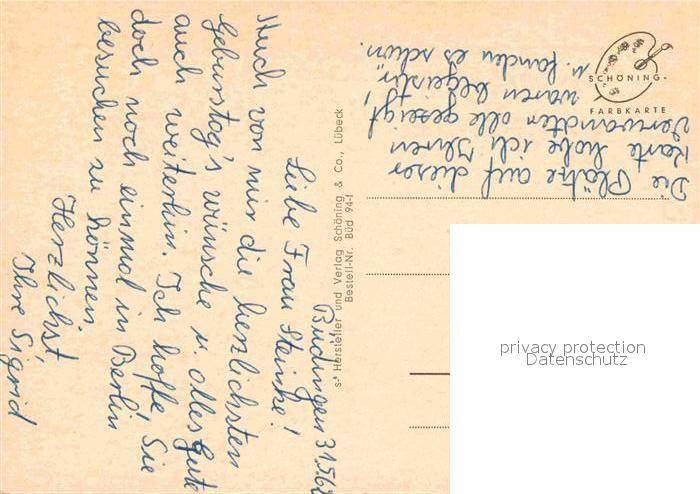 Büdingen 31.5.62
Liebe Frau Steinke!
Auch von mir die herzlichsten
Geburtstag's wünsche u. alles Gute
auch weiterhin. Ich hoffe, Sie
doch noch einmal in Berlin
besuchen zu können.
Herzlichst
Ihre Sigrid
Die Plätze auf dieser
Karte habe ich Ihren
Verwandten alle gezeigt,
waren begeistert
u. fanden es schön.
SCHÖNING
FARBKARTE
Hersteller und Verlag Schöning & Co., Lübeck
Bestell-Nr. Büd 94-1
privacy protection
Datenschutz